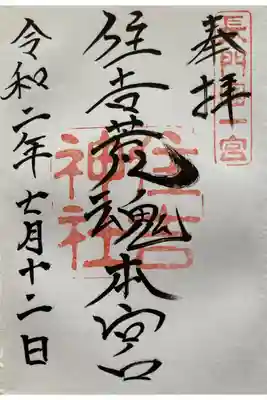 奉拝
長門国一宮
住吉荒魂本宮
住吉
神社
令和二年七月十二日